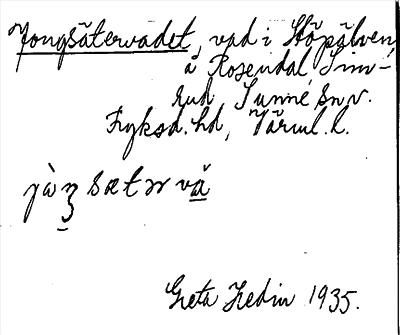 Jongsätervadet, vad i Stöpälven,
å Rosendal, Sim-
rud, Sunne sn v.
Fryksd. hd, Värml. l.
Greta Hedin 1935.